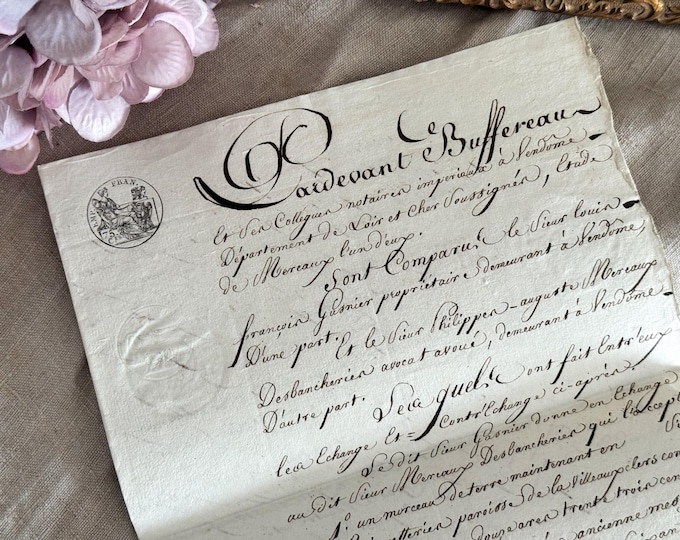 EMP. FRAN.
Pardevant Me Buffereau
Et Ses Collègues notaires impériaux à Vendôme
Département de Loir et Cher Soussignés, Etude
de Mereaux l'und'eux.
Sont Comparus le Sieur louis
françois Garnier propriétaire demeurant à Vendôme,
D'une part.
Et le Sieur Philippes-auguste Mereaux
Desbancheries avocat avoué, demeurant à Vendôme
D'autre part.
Lesquels ont fait Entr'Eux
les Echange Et = Contr'Echange ci-après.
Le dit Sieur Garnier donne en Echange
au dit Sieur Mereaux Desbancheries qui l'accepte
1º un morceau de terre maintenant en
paroisse de la
douze ares trente trois cen
ancienne mes